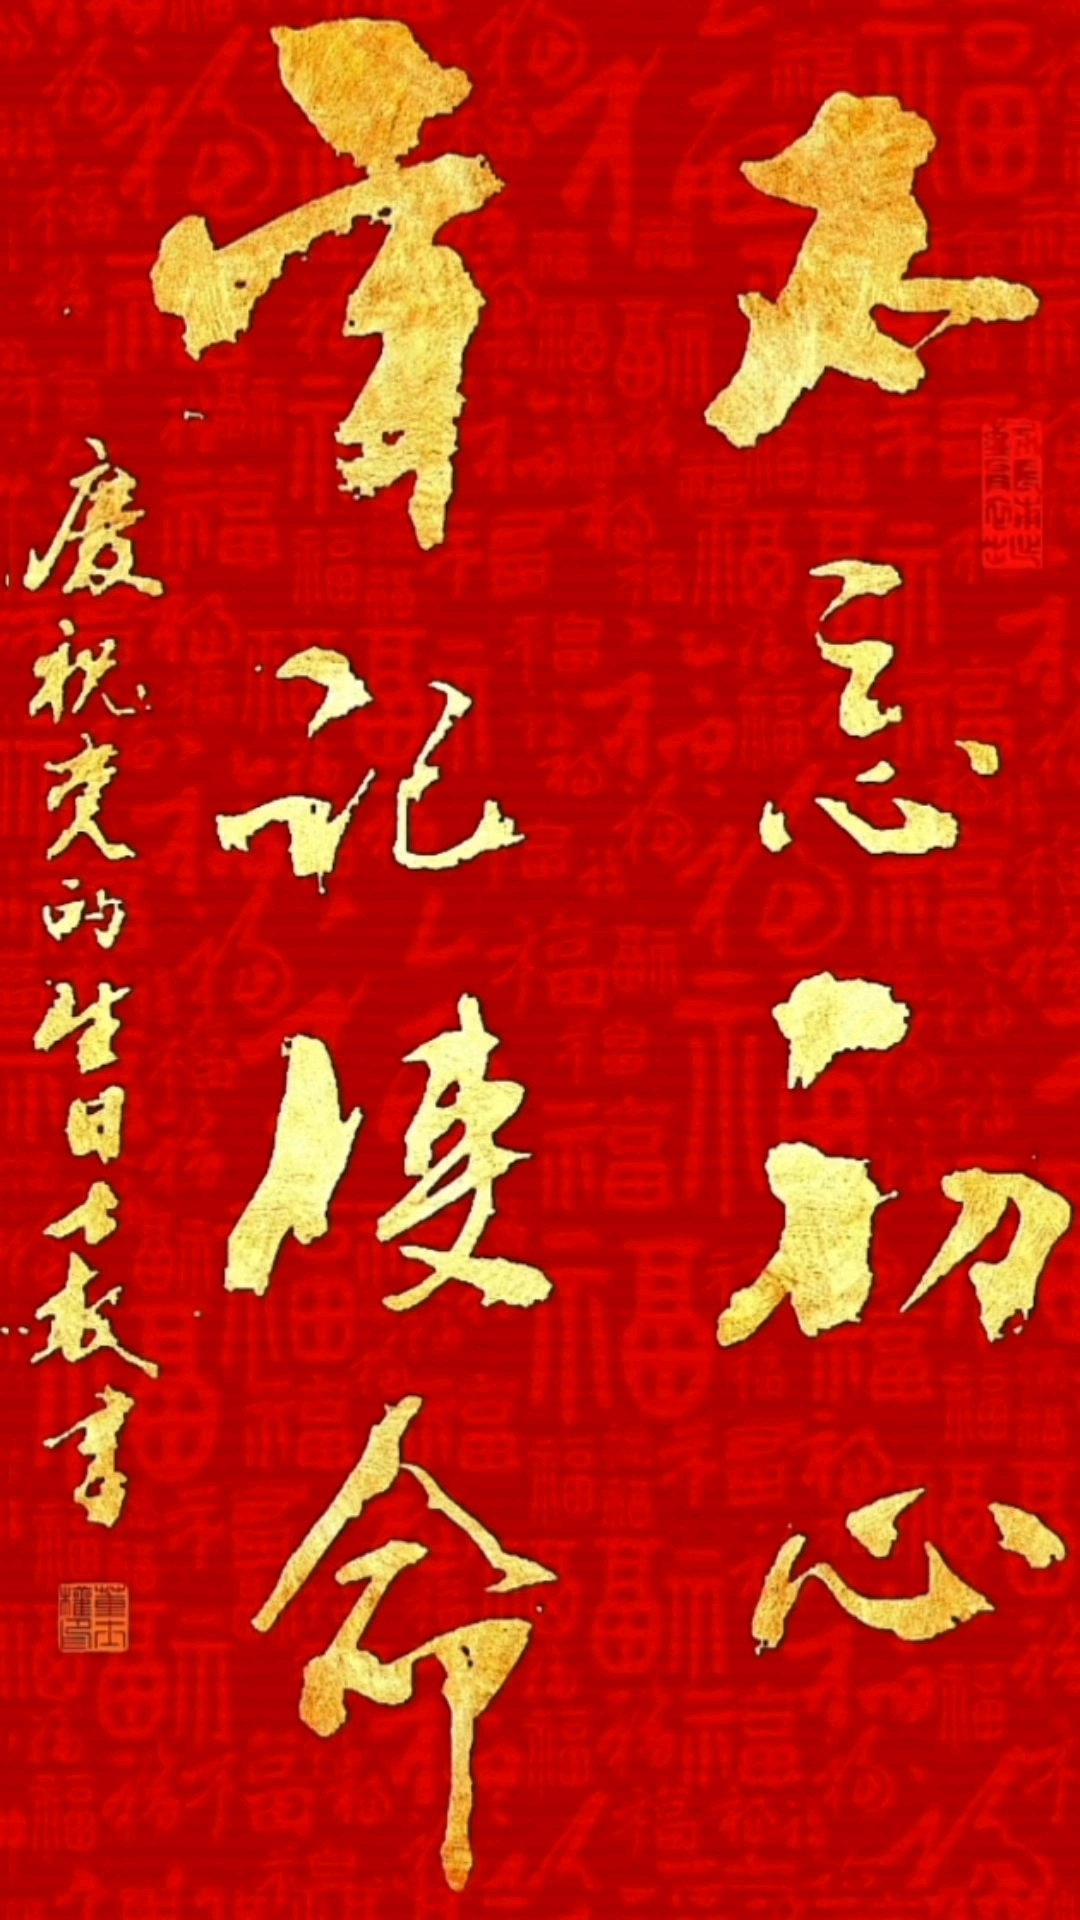 不忘初心
牢记使命
庆祝党的生日士教书